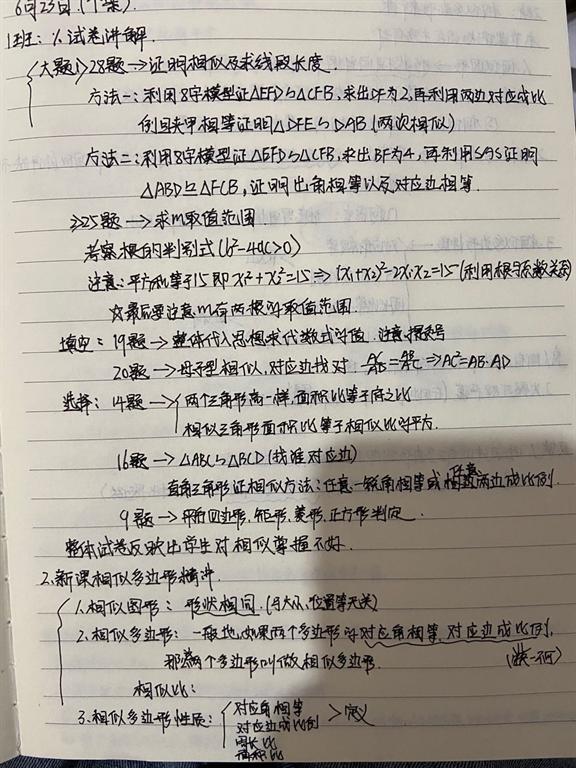 6月23日.(个案).
1班: 1.试卷讲解.
大题1>28题→证明相似及求线段长度.
方法一:利用8字模型证△EFD∽△CFB,求出DF为2,再利用两边对应成比
例且夹甲相等证明△DFE∽DAB(两次相似)
方法二:利用8字模型证△EFD∽△CFB,求出BF为4,再利用SAS证明
△ABD≌△FCB,证明出角相等以及对应边相等.
2>25题→求m取值范围.
考察根的判别式(b²-4ac>0)
注意:平方和等于15即x₁²+x₂²=15⇒(x₁+x₂)²-2x₁x₂=15(利用根与系数关系)
☆最后要注意m有两根的取值范围.
填空:19题→整体代入思想求代数式的值.注意提系号
20题→母子型相似,对应边找对. AC/AD=AB/AC⇒AC²=AB·AD
选择:14题→两个三角形高一样,面积比等于底之比
相似三角形面积比等于相似比的平方.
16题→△ABC∽△BCD(找准对应边)
直角三角形证相似方法:任意一锐角相等或任意两边成比例.
9题→平行四边形,矩形,菱形,正方形判定.
整体试卷反映出学生对相似掌握不好.
2.新课相似多边形精讲.
1.相似图形:形状相同.(与大小,位置等无关)
2.相似多边形:一般地,如果两个多边形的对应角相等,对应边成比例,
那么两个多边形叫做相似多边形. (缺一不可)
相似比:
3.相似多边形性质: 对应角相等
对应边成比例 >定义
周长比
面积比